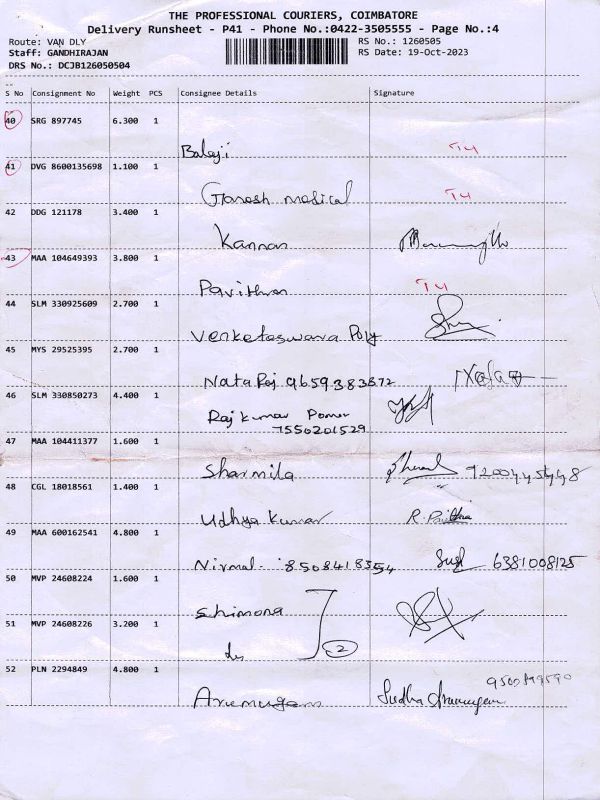 THE PROFESSIONAL COURIERS, COIMBATORE
Delivery Runsheet - P41 - Phone No.:0422-3505555 - Page No.:4
Route: VAN DLY
RS No.: 1260505
Staff: GANDHIRAJAN
RS Date: 19-Oct-2023
DRS No.: DCJB126050504
S No Consignment No Weight PCS Consignee Details Signature
40 SRG 897745 6.300 1
Balaji
41 DVG 8600135698 1.100 1
Ganesh medical
42 DDG 121178 3.400 1
Kannan
43 MAA 104649393 3.800 1
Pavithra
44 SLM 330925609 2.700 1
Venkateswara Poly
45 MYS 29525395 2.700 1
Nataraj
46 SLM 330850273 4.400 1
Rajkumar Power
7550201529
47 MAA 104411377 1.600 1
Sharmila
48 CGL 18018561 1.400 1
Udhya kumar
49 MAA 600162541 4.800 1
Nirmal 8508418354 6381008125
50 MVP 24608224 1.600 1
Shimona
51 MVP 24608226 3.200 1
2
52 PLN 2294849 4.800 1
Arumugam Sudha Arumugam